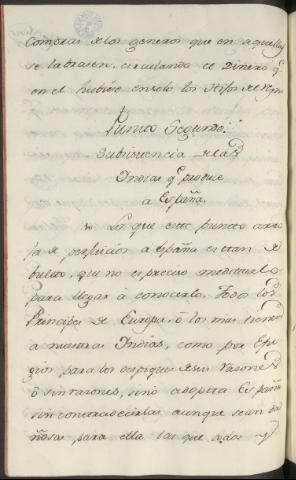 Compras de los generos que en aquellos
se labrasen, circulando el Dinero q.e
en el hubiese en solo los Hijos del Reyno
Punto Segundo.
Subsistencia de las
Indias q.e produce
a España.
Lo que este punto arro
ja de perjuicios a España es tan de
bulto, que no es preciso meditarlo
para llegar à conocerlo. Todos los
Principes de Europa, ò los mas tienen
a nuestras Indias, como por Efu
gios para los despiques de sus razones
ò sin razones, sino adopta España
sin contradecirlas aunque sean da
ñosas para ella las que a dos y